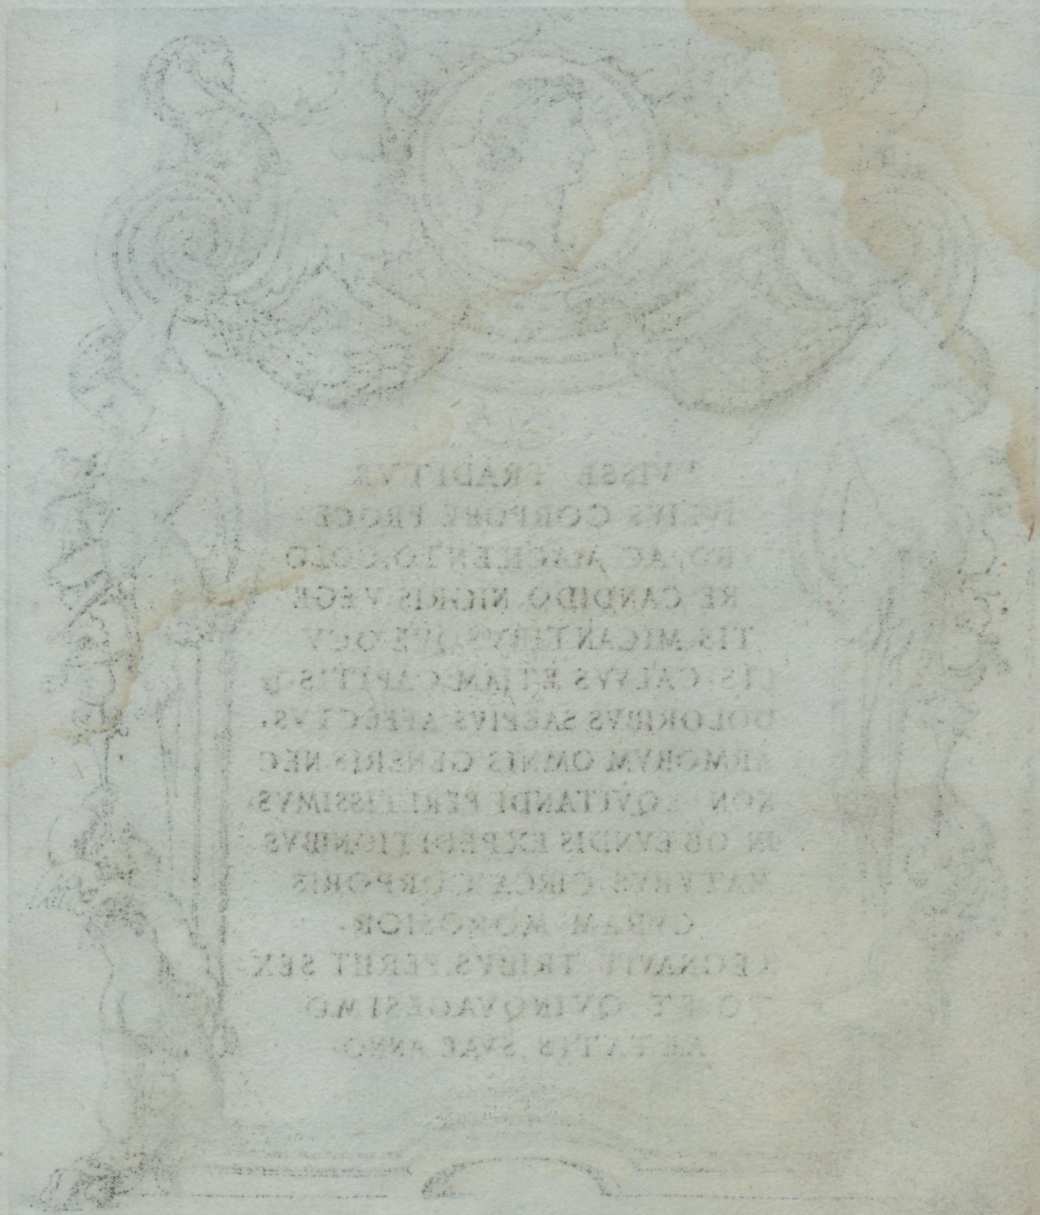 VISSE TRADITVR
IVLIVS CORPORE PROCE
RO, AC MACILENTO COLO
RE CANDIDO NIGRIS VEGE
TIS MICANTIBVS, QVE OCV
LIS CALVVS ETIAM CAPITIS
DOLORIBVS SAEPIVS AFFECTVS.
ARMORVM OMNIS GENERIS NEC
NON EQVITANDI PERITISSIMVS
IN OBEVNDIS EXPEDITIONIBVS
CIRCA CORPORIS
CVRAM MOROSIOR.
REGNAVIT TRIBVS PERIIT SEX
TO ET QVINQVAGESIMO
AETATIS SVAE ANNO.